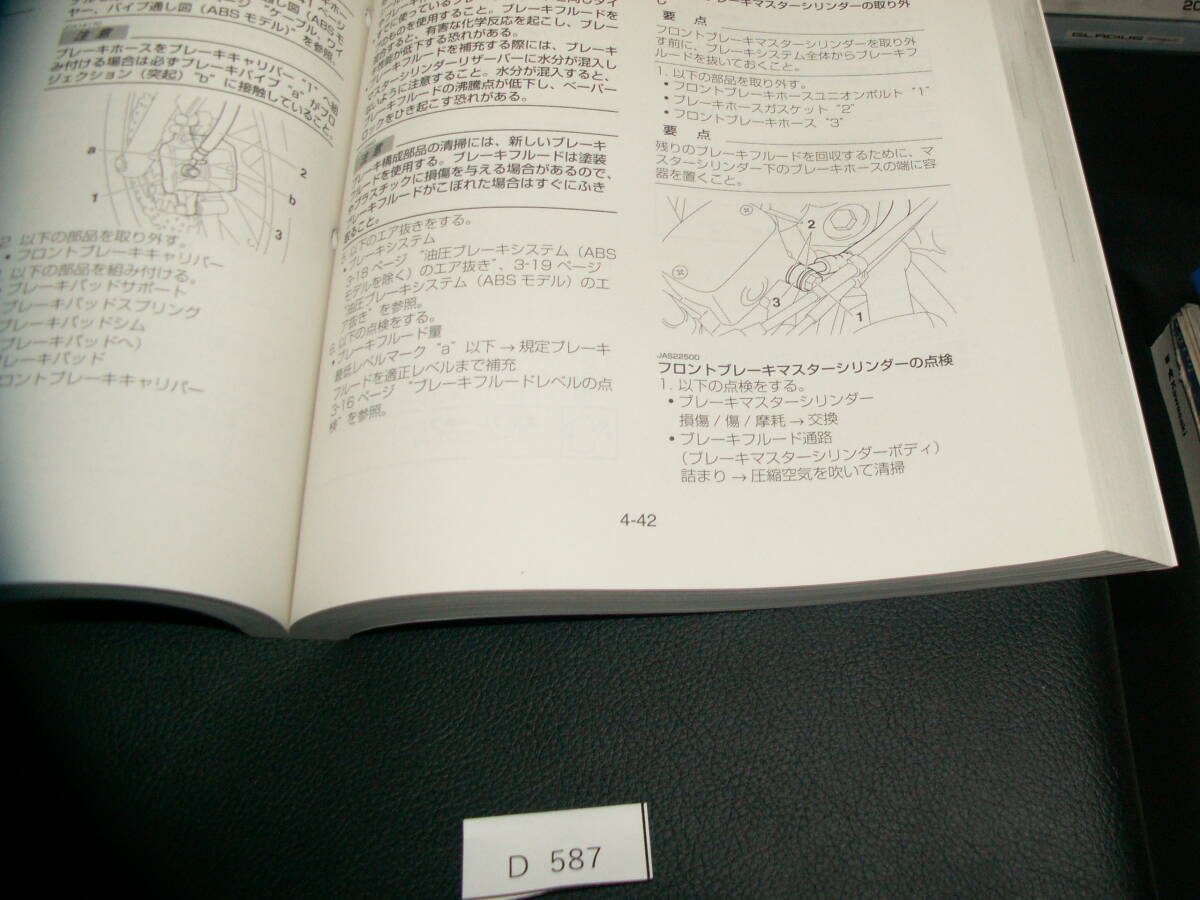 ヤー、パイプ通し図（ABSモデル）"を参照。
注 意
ブレーキホースをブレーキキャリパー "1" へ組
み付ける場合は必ずブレーキパイプ "a" がプロ
ジェクション（突起）"b" に接触していること。
a
1
2
b
3
2. 以下の部品を取り外す。
• フロントブレーキキャリパー
以下の部品を組み付ける。
ブレーキパッドサポート
ブレーキパッドスプリング
ブレーキパッドシム
ブレーキパッドへ）
レーキパッド
ロントブレーキキャリパー
のものを使用すること。ブレーキフルードを
混合すると、有害な化学反応を起こし、ブレー
キ性能が低下する恐れがある。
ブレーキフルードを補充する際には、ブレーキ
マスターシリンダーリザーバーに水分が混入し
ないように注意すること。水分が混入すると、
ブレーキフルードの沸騰点が低下し、ベーパー
ロックをひき起こす恐れがある。
注 意
ブレーキ構成部品の清掃には、新しいブレーキ
フルードを使用する。ブレーキフルードは塗装
やプラスチックに損傷を与える場合があるので、
ブレーキフルードがこぼれた場合はすぐにふき
取ること。
5. 以下のエア抜きをする。
• ブレーキシステム
3-18 ページ "油圧ブレーキシステム（ABS
モデルを除く）のエア抜き"、3-19 ページ
"油圧ブレーキシステム（ABS モデル）のエ
ア抜き" を参照。
6. 以下の点検をする。
• ブレーキフルード量
最低レベルマーク "a" 以下 → 規定ブレーキ
フルードを適正レベルまで補充
3-16 ページ "ブレーキフルードレベルの点
検" を参照。
ブレーキマスターシリンダーの取り外
し
要 点
フロントブレーキマスターシリンダーを取り外
す前に、ブレーキシステム全体からブレーキフ
ルードを抜いておくこと。
1. 以下の部品を取り外す。
• フロントブレーキホースユニオンボルト "1"
• ブレーキホースガスケット "2"
• フロントブレーキホース "3"
要 点
残りのブレーキフルードを回収するために、マ
スターシリンダー下のブレーキホースの端に容
器を置くこと。
2
3
1
JAS22500
フロントブレーキマスターシリンダーの点検
1. 以下の点検をする。
• ブレーキマスターシリンダー
損傷 / 傷 / 摩耗 → 交換
• ブレーキフルード通路
（ブレーキマスターシリンダーボディ）
詰まり → 圧縮空気を吹いて清掃
4-42
D 587
GLADIUS
20
Kawasaki